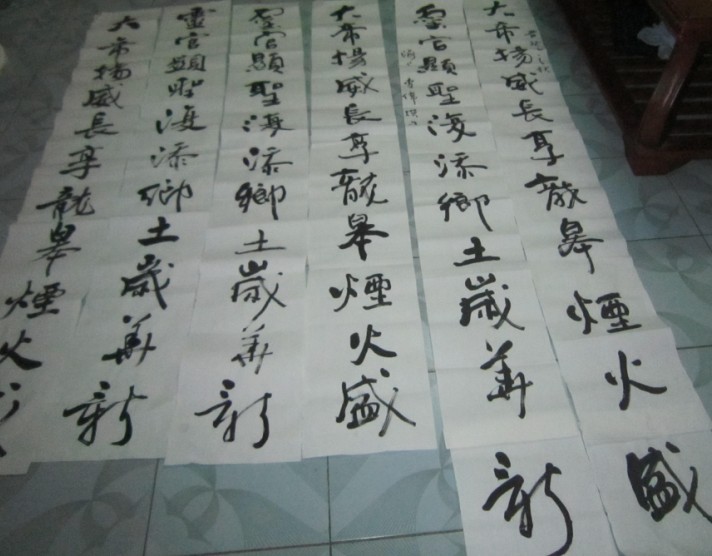 大市揚威長享龍皋煙火盛
靈官顯聖復添鄉土歲華新
大市揚威長享龍皋煙火盛
靈官顯聖復添鄉土歲華新
靈官顯聖復添鄉土歲華新
大市揚威長享龍皋煙火